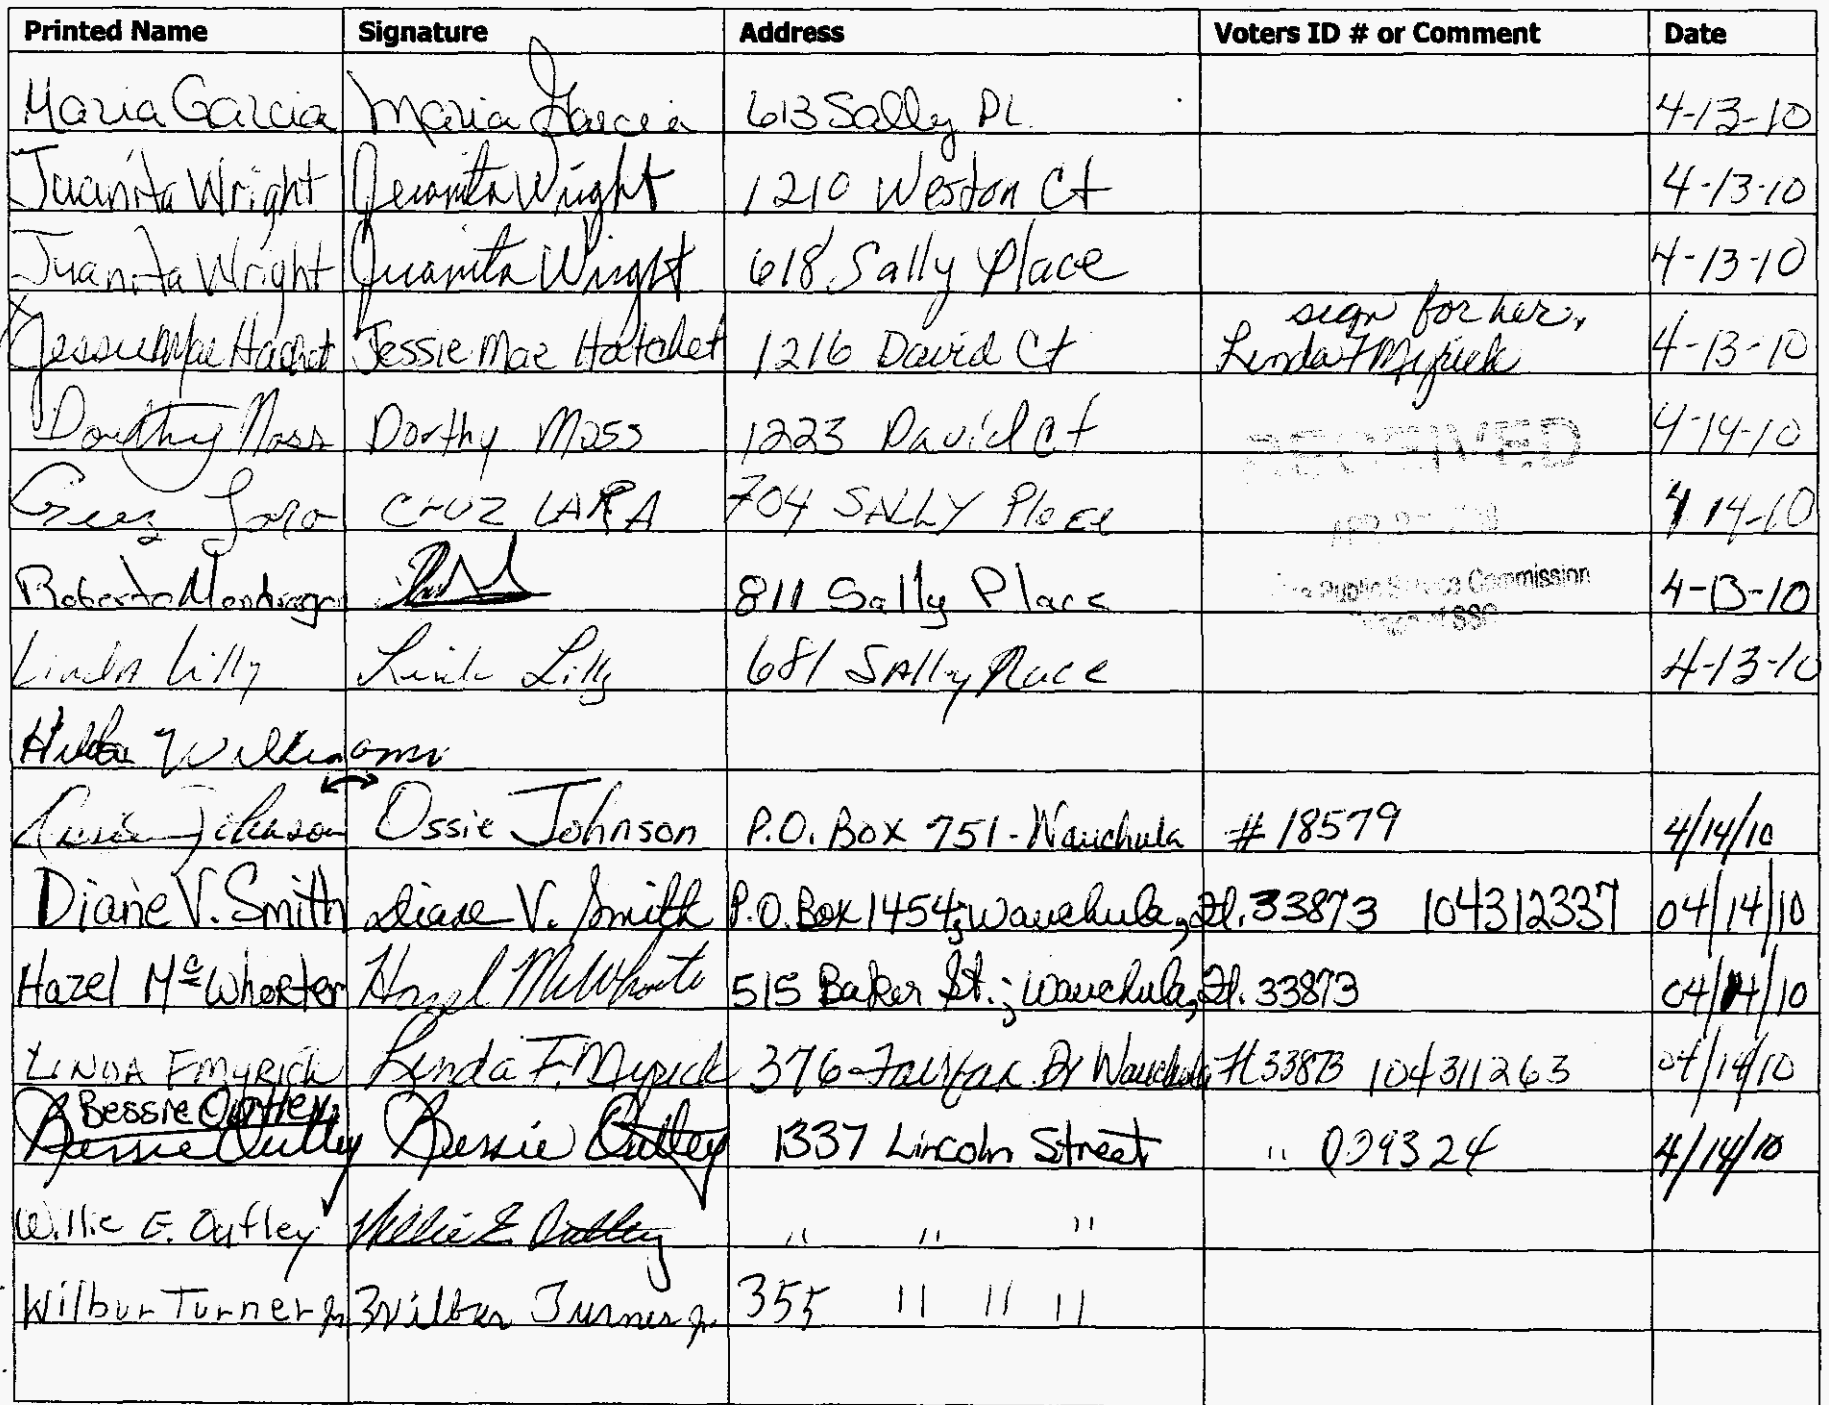 Printed Name Signature Address Voters ID # or Comment Date
Maria Garcia Maria Garcia 613 Sally PL. 4-13-10
Juanita Wright Juanita Wright 1210 Weston Ct 4-13-10
Juanita Wright Juanita Wright 618 Sally Place 4-13-10
sign for her,
Jessie Mae Hatchet Jessie Mae Hatchet 1216 David Ct Linda F Myrick 4-13-10
Dorthy Moss Dorthy Moss 1223 David Ct RECEIVED 4-14-10
Cruz Lara CRUZ LARA 704 SALLY Place 4 14-10
Roberto Mondragon 811 Sally Place Public Service Commission 4-13-10
Linda Lilly Linda Lilly 681 SAlly Place 4-13-10
Hilda Williams
Ossie Johnson Ossie Johnson P.O. Box 751 - Wauchula # 18579 4/14/10
Diane V. Smith Diane V. Smith P.O. Box 1454; Wauchula, Fl. 33873 104312337 04/14/10
Hazel McWhorter Hazel McWhorter 515 Baker St.; Wauchula, Fl. 33873 04/14/10
LINDA F MYRICK Linda F. Myrick 376 Fairfax Dr Wauchula Fl 33873 104311263 04/14/10
Bessie Outley
Bessie Outley Bessie Outley 1337 Lincoln Street " 029324 4/14/10
Willie E. Outley Willie E. Outley " " "
Wilbur Turner Jr. Wilbur Turner Jr. 355 " " "